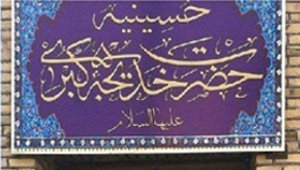 حسینیه
حضرت خدیجه کبری
علیها السلام